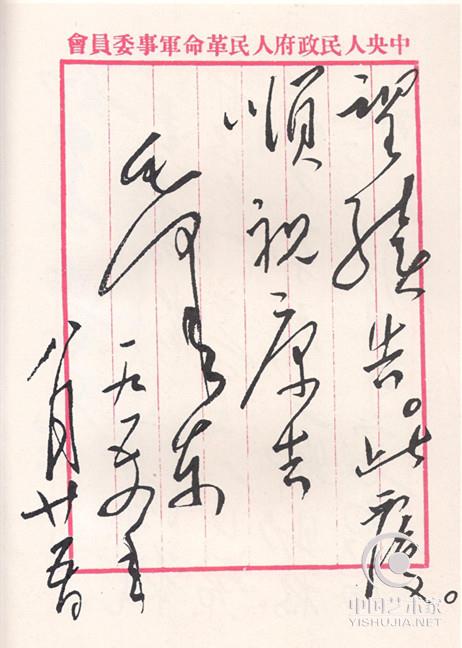 中央人民政府人民革命軍事委員會
望續告。此覆。
順祝康吉
毛澤东
一九五年
八月廿五日
中国艺术家
YISHUJIA.NET